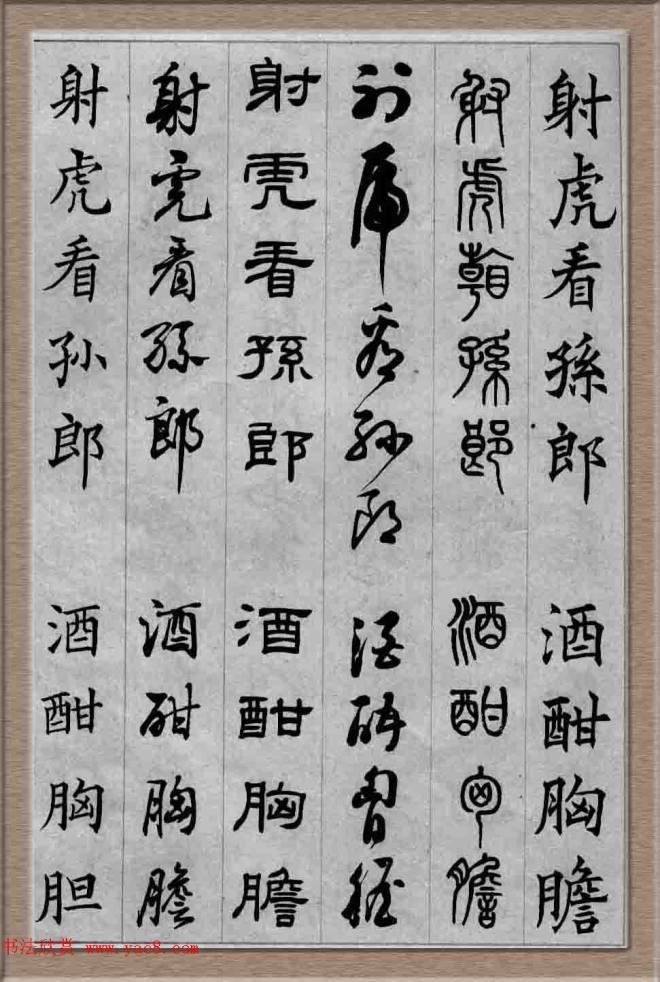 射虎看孫郎 酒酣胸膽
射虎看孫郎 酒酣胷膽
射虎看孫郎 酒酣胸膽
射虎看孫郎 酒酣胸膽
射虎看孫郎 酒酣胸膽
射虎看孙郎 酒酣胸胆
书法欣赏 www.yac8.com